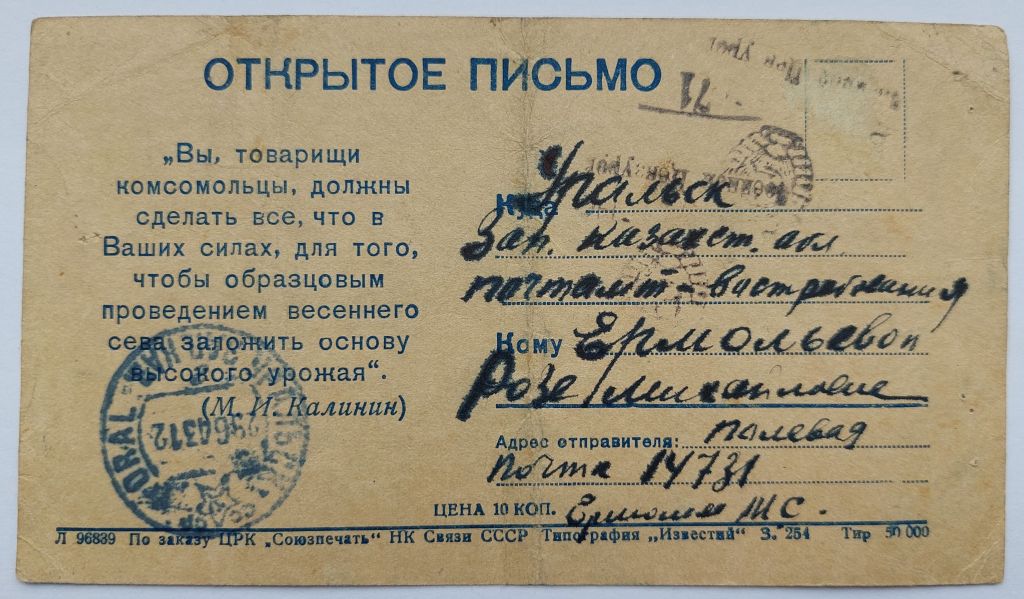 ОТКРЫТОЕ ПИСЬМО
71
„Вы, товарищи
комсомольцы, должны
сделать все, что в
Ваших силах, для того,
чтобы образцовым
проведением весеннего
сева заложить основу
высокого урожая“.
(М. И. Калинин)
URAL
Куда Уральск
Зап. Казахст. обл
почтамт-
Кому Ермольевой
Розе Михайловне
Адрес отправителя: Полевая
почта 14731
ЦЕНА 10 КОП. М С.
Л 96839 По заказу ЦРК „Союзпечать“ НК Связи СССР Типография „Известий“ З. 254 Тир 50 000